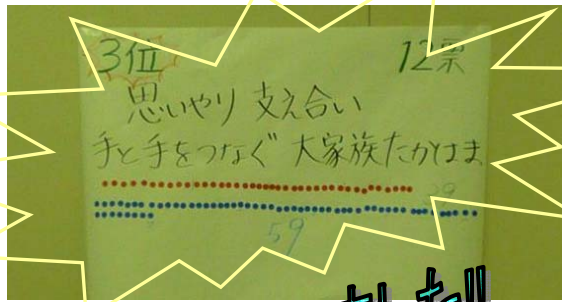 3位 12票
思いやり 支え合い
手と手をつなぐ 大家族たかはま
39
59
した!!